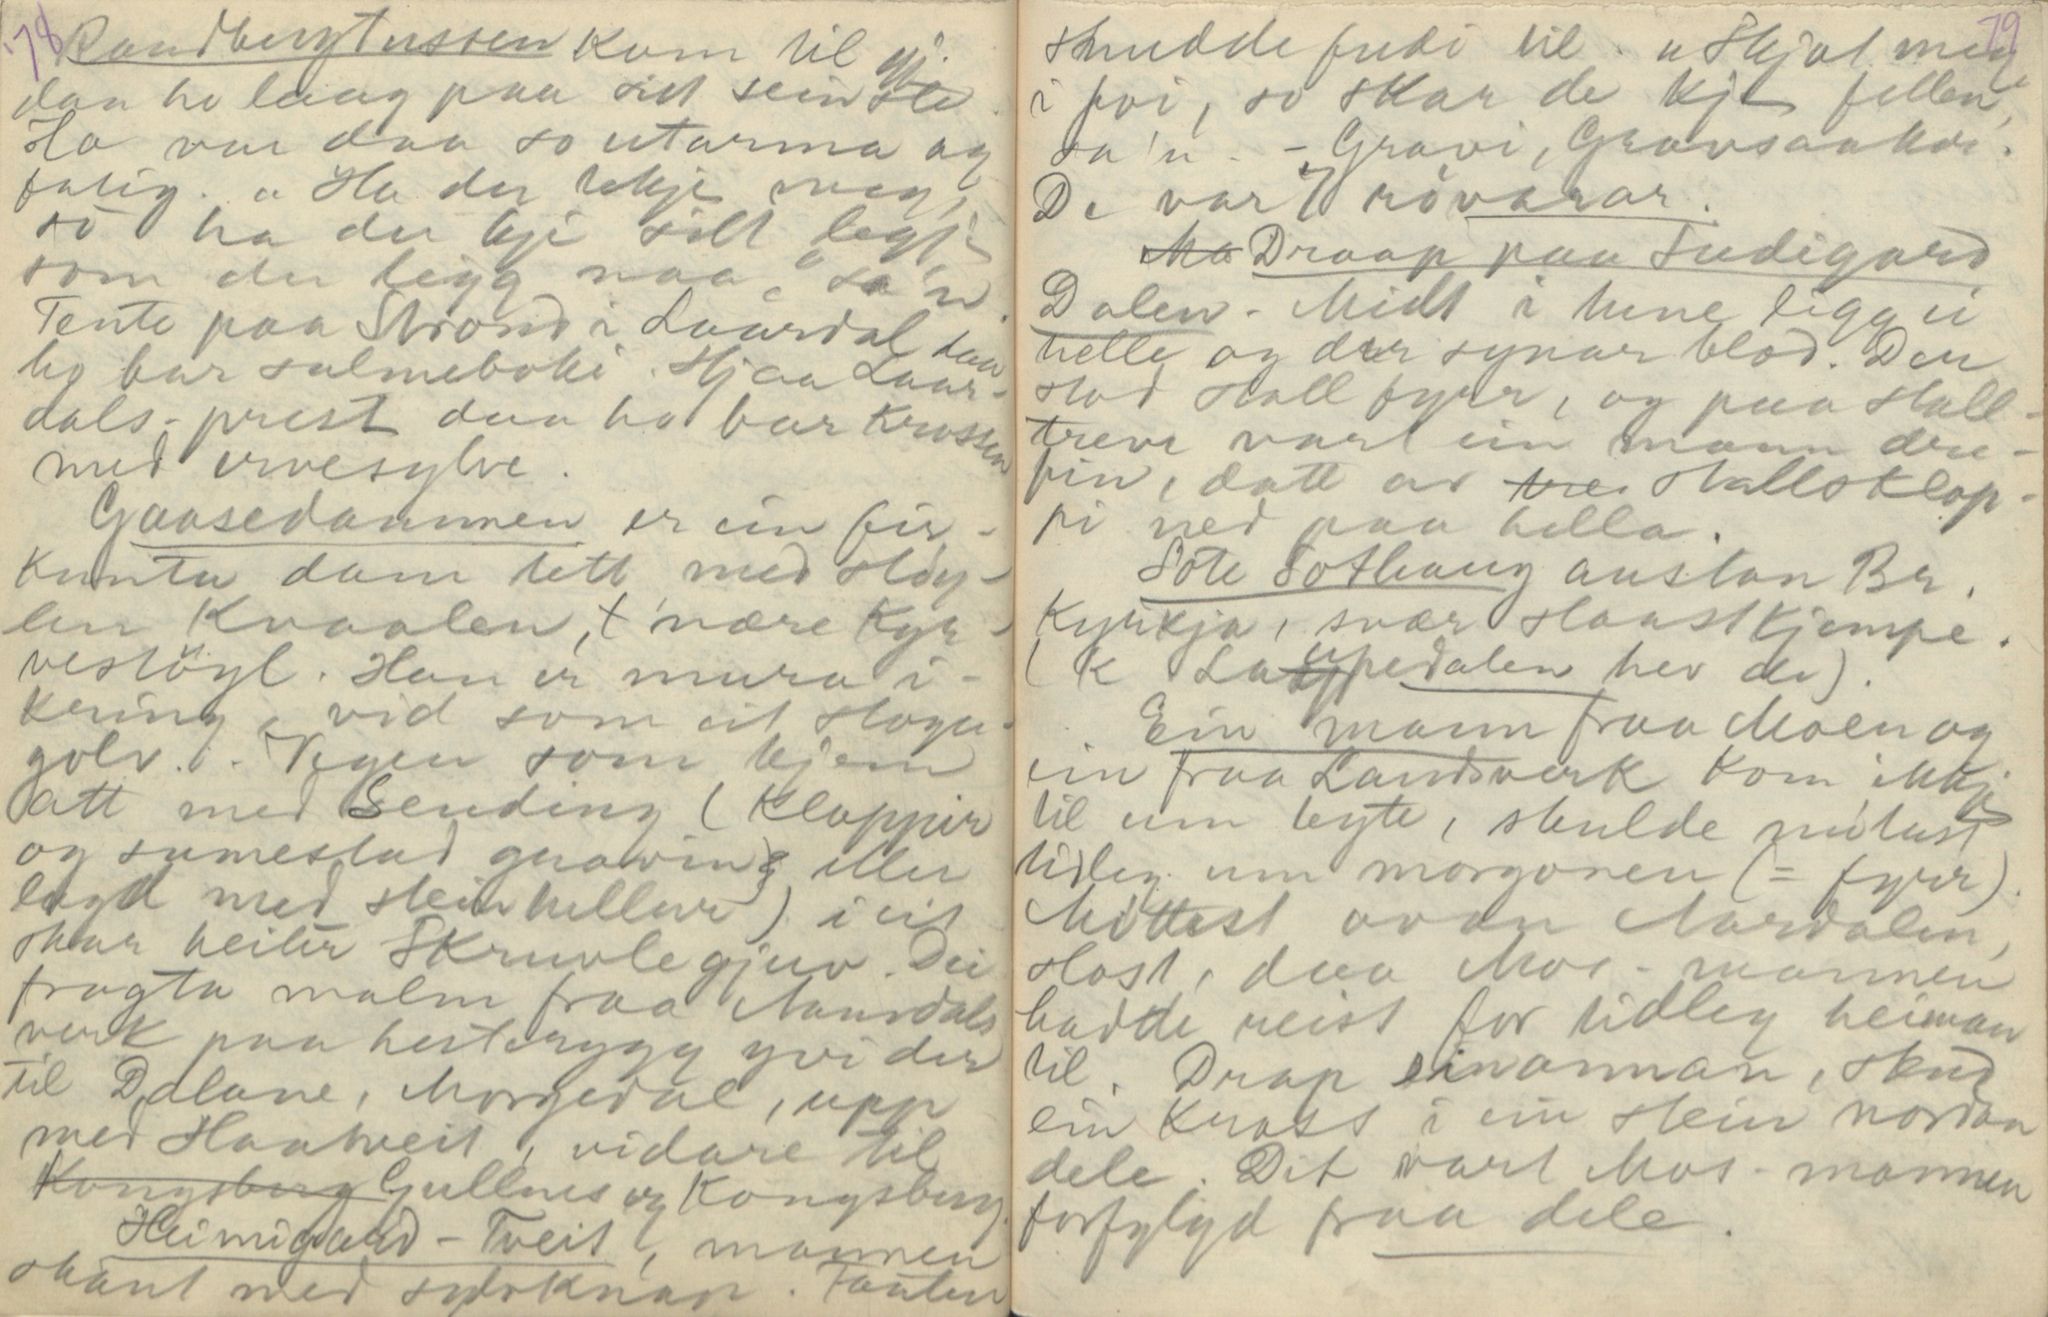 78
Raudbergtussen kom til gj.
daa ho laag paa sitt seinste.
Ho var daa so utarma og
fatig. "Ha du ikkje meg,
so ha du kje silt legji
som du ligg naa," sa 'n.
Tente paa Strond i Laardal daa
ho bar salmeboki. Hjaa Laar-
dals-prest daa ho bar krossen
med ervesylve.
Gaasedammen er ein fir-
kunta dam tett med støy-
len Kvaalen, t nære Kyr-
vestøyl. Han er mura i-
kring, vid som eit stogu-
golv. Vegen som kjem
att med Sending (kloppir
og sumestad graving eller
lagd med steinhellur) i eit
skar heiter Skruvlegjuv. Dei
fragta malm fraa Naursdals
verk paa hesterygg yvi der
til Dalane, Morgedal, upp
med Haatveit, vidare til
Kongsberg Gullnes og Kongsberg.
Heimigard-Tveit, mannen
skaut med sylvknap. Faaten
79
snudde fudi til. "Skjot meg
i foi, so skar de kje fellen,"
sa 'n. - Gravi, Gravsaakri.
De var 7 røvarar.
Ma Draap paa Sudigard
Dalen. Midt i tune ligg ei
helle og der synar blod. Der
stod stall fyrr, og paa stall-
treve vart ein mann dre-
pin, datt av tre stallsklop-
pi ned paa hella.
Sote Sothaug austan Br.
kyrkja, svær slaastkjempe.
(K Laupedalen hev de).
Ein mann fraa Moen og
ein fraa Landsverk kom ikkje
til um byte, skulde møtast
tidleg um morgonen (= fyrr).
Møttest ovan Nardalen,
slost, daa Mos-mannen
hadde reist for tidleg heiman
til. Drap einannan, stend
ein kross i ein stein nordan
dele. Dit vart Mos-mannen
forfylgd fraa dele.